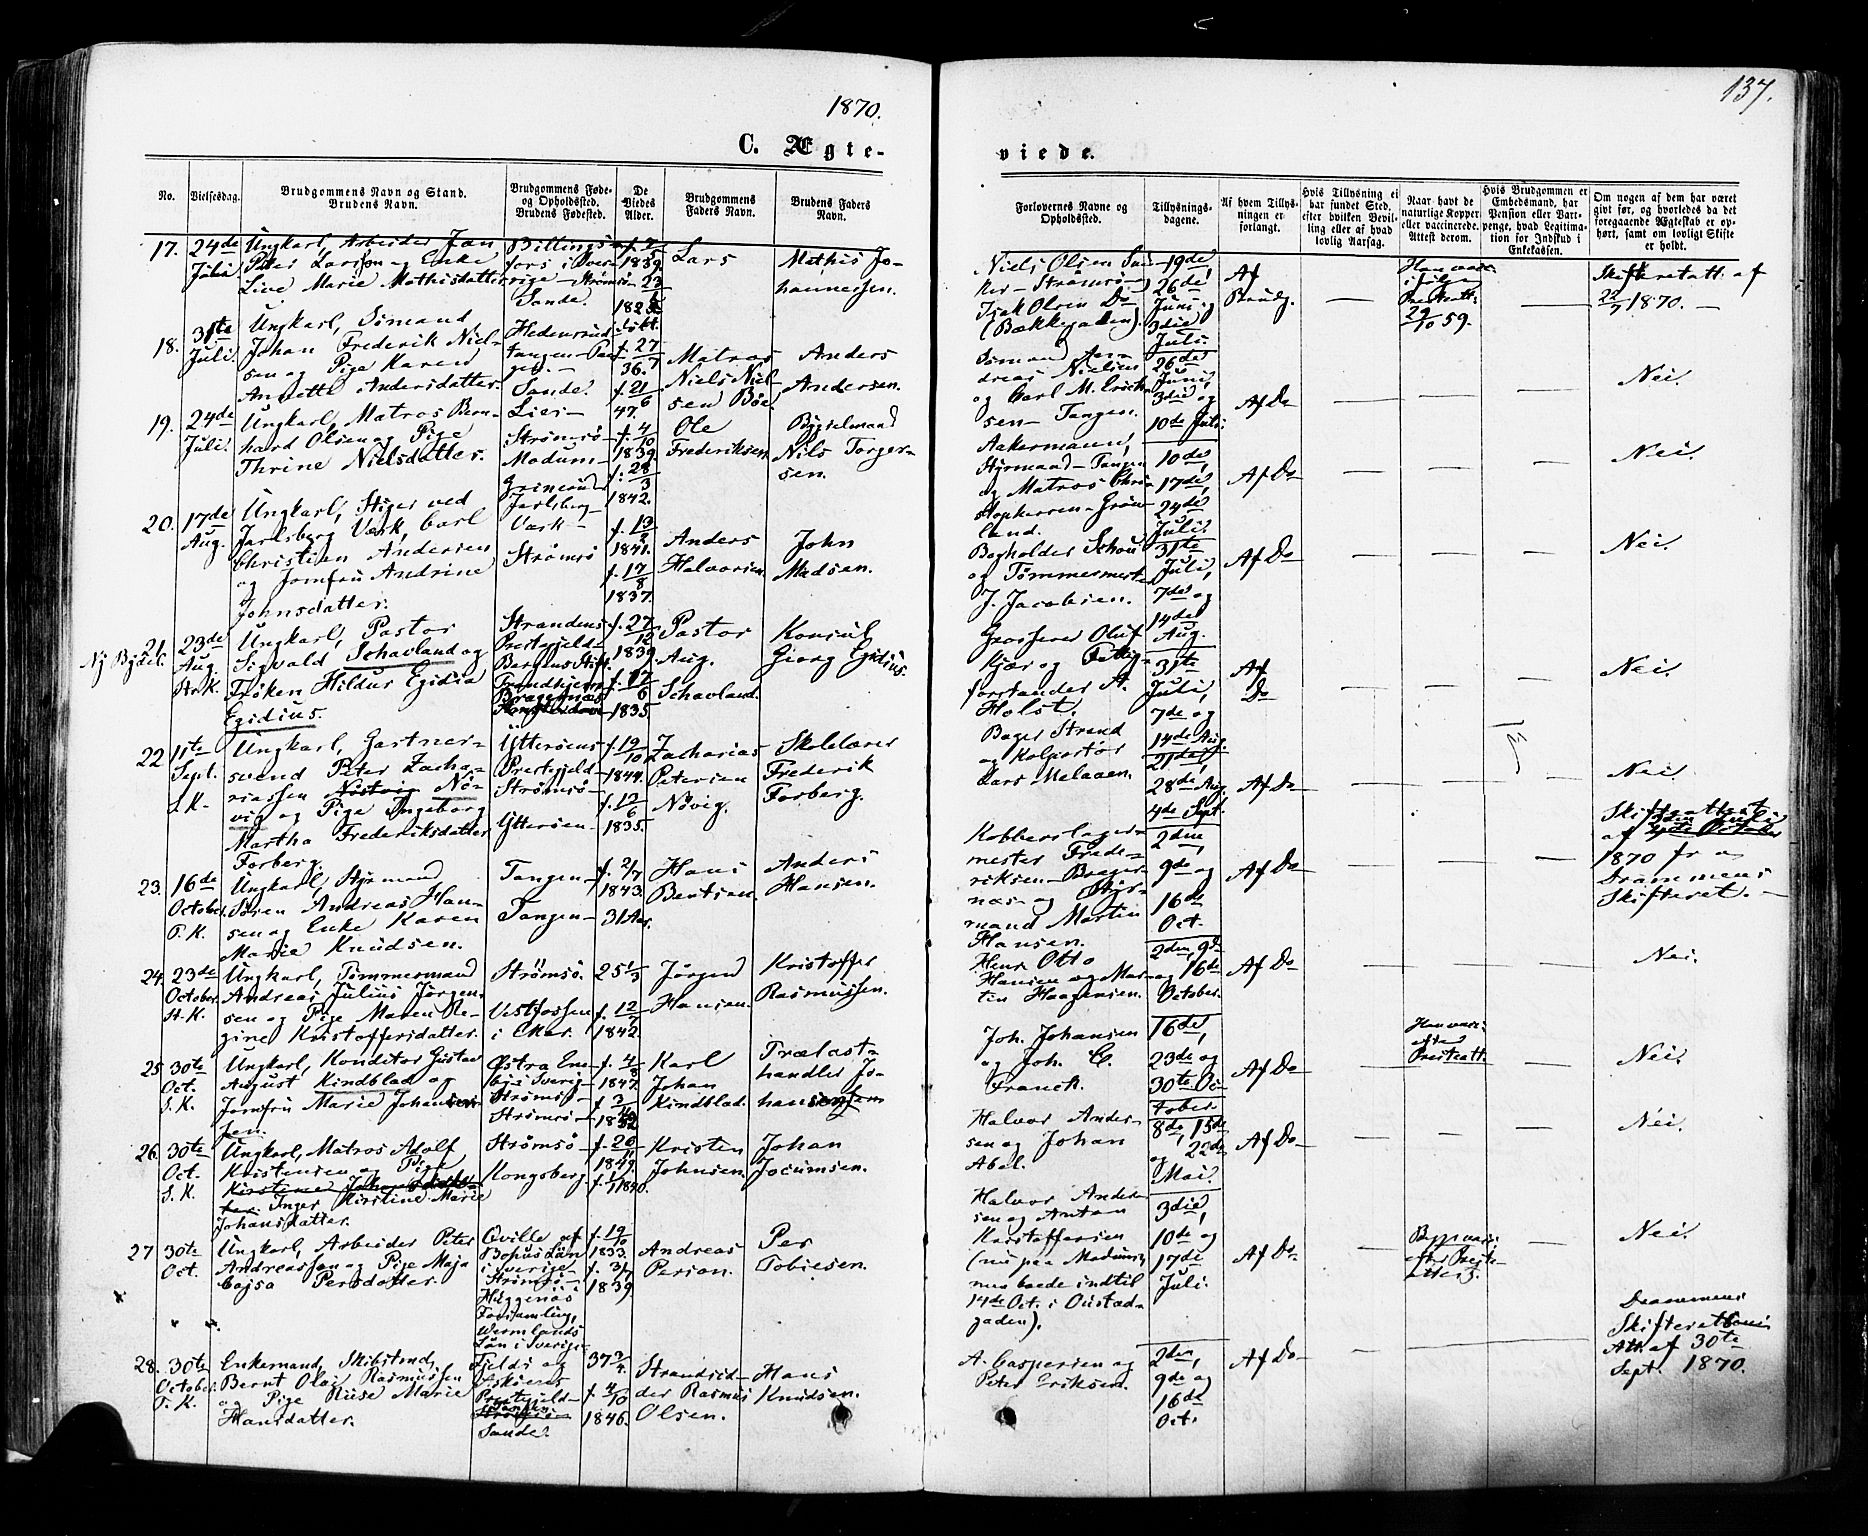 1870.
137.
C. Ægte-
viede.
No.
Vielsesdag.
Brudgommens Navn og Stand.
Brudens Navn.
Brudgommens Føde-
og Opholdssted.
Brudens Fødested.
De
Viedes
Alder.
Brudgommens
Faders Navn.
Brudens Faders
Navn.
Forlovernes Navne og
Opholdssted.
Tillysnings-
dagene.
Af hvem Tillys-
ningen er
forlangt.
Hvis Tillysning ei
har fundet Sted,
efter hvilken Bevil-
ling eller af hvad
lovlig Aarsag.
Naar havt de
naturlige Kopper
eller vaccinerede.
Attest derom.
Hvis Brudgommen er
Embedsmand, har
Pension eller Vart-
penge, hvad Legitima-
tion for Indskud i
Enkekassen.
Om nogen af dem har været
gift før, og hvorledes da det
foregaaende Ægteskab er op-
hørt, samt om lovligt Skifte
er holdt.
17.
24de
Juli
Ungkarl, Arbeider Jan
Peter Larsson og Enke
Live Marie Mathisdatter
Billings-
fors i Sver-
rige - Strømsø
Sande.
1839.
23
1828
Lars
Mathis Jo-
hannessen.
Niels Olsen
Strømsø
Isak Olsen Do
(Bækkegaden).
19de,
26de
Juni og
3die
Juli.
Af
Brudg.
—
Han vacc.
ifølge
Præsteatt.
29/10 59.
—
Skifteretatt. af
22/7 1870. —
18.
31te
Juli.
Ungkarl, Simand
Johan Frederik Niel-
sen og Pige Karen
Annette Andersdatter.
Hedensrud
Tangen
Sande.
f. 27/7
36.
f. 21/6
47.
Matros
Niels Niel-
sen Böe
Anders
Andersen.
Simand An-
dreas Nielsen
og Carl M. Erick-
sen - Tangen.
26de
Juni,
3die og
10de Juli.
Af Do
—
—
—
Nei.
19.
24de
Juli.
Ungkarl, Matros Bern-
hard Olsen og Pige
Thrine Nielsdatter.
Lier -
Strømsø
Modum -
f. 4/10
1839.
f. 28/3
1842.
Ole
Frederiksen
Bygselmand
Nils Torger-
sen.
Aakermann,
Styrmand - Tangen
og Matros Chri-
stophersen - Grøn-
land.
10de,
17de,
24de
Juli.
Af Do
—
—
—
Nei.
20.
17de
Aug.
Ungkarl, Stiger ved
Jarlsberg Værk, Carl
Christian Andersen
og Jomfru Andrine
Johnsdatter.
Jarlsberg
Værk -
Strømsø
1841.
f. 17/8
1837.
Anders
Halvorsen
John
Madsen.
Bogholder Schou
og Tømmermest.
J. Jacobsen.
31te
Juli,
7de og
14de
Aug.
Af Do
—
—
—
Nei.
21.
Ny Bydel.
23de
Aug
St. K.
Ungkarl, Pastor
Sigvald Schavland og
Frøken Hildur Egidia
Egidius.
Strandens
Prestegjeld
Bergens Stift.
Trondhjem
Bragernæs
f. 27/12
1839
f. 17/6
1835
Pastor
Aug.
Schavland.
Konsul
Georg Egidius.
Grosserer Oluf
Kjær og Fattig-
forstander A.
Holst.
31te
Juli,
7de og
14de Aug.
Af
Do
—
—
—
Nei.
22
11te
Sept.
S. K.
Ungkarl, Gartner-
svend Peter Zacha-
riassen Nöstvig Nö-
vig og Pige Ingeborg
Martha Frederiksdatter
Forberg.
Ytterøens
Prestegjeld
Strømsø -
Ytterøen -
f. 19/10
1844.
f. 17/6
1835.
Zacharias
Petersen
Növig.
Skolelærer
Frederik
Forberg.
Bager Strand
og Kolportør
Lars Melaaen.
21de,
28de Aug.
4de Sept.
Af Do
—
—
—
Nei.
23.
16de
October.
T. K.
Ungkarl, Styrmand
Søren Andreas Han-
sen og Enke Karen
Marie Knudsen.
Tangen -
Tangen -
f. 2/7
1843.
31 Aar.
Hans
Bentsen
Anders
Hansen.
Kobberslager-
mester Frede-
riksen - Brager-
næs - og Styr-
mand Martin
Hansen.
2den,
9de og
16de
Oct.
Af Do
—
—
—
Skifteattest
af
1870 fr
Drammens
Skifteret. —
24.
23de
October.
St. K.
Ungkarl, Tømmermand
Andreas Julius Jörgen-
sen og Pige Maren Re-
gine Kristoffersdatter.
Strømsø.
Vestfossen
i Eker.
25 1/3
f. 12/7
1842.
Jörgen
Hansen.
Kristoffer
Rasmussen.
Henr Otto
Hansen og Mar-
tin Haagensen.
2den, 9de
og 16de
October.
Af Do
—
—
—
Nei.
25
30te
Oct.
S. K.
Ungkarl, Konditor Gustav
August Kindblad og
Jomfru Marie Johan
sen.
Østra
i Sverig
Strømsø -
Strømsø -
f. 4/8
1847.
Karl
Johan
Kindblad.
Trælast-
handler Jo-
hansen
Joh. Johansen
og Joh. C.
Franck.
16de,
23de og
30te Oc-
tober.
Af Do
—
Han vacc.
efter
Præsteatt.
—
Nei.
26.
30te
Oct.
S. K.
Ungkarl, Matros Adolf
Kristensen og Pige
Kirstine
Inger Kirstine Marie
Johansdatter.
Strømsø -
Kongsberg
1849.
1840.
Kristen
Johnsen.
Johan
Jocumsen.
Halvor Ander-
sen og Johan
Abel.
8de, 15de
og 22de
Mai.
Af Do
—
—
—
Nei.
27
30te
Oct.
Ungkarl, Arbeider Peter
Andreasson og Pige Maja
Cajsa Persdotter.
Qville af
Bohus Län
i Sverige
Strømsø -
Huggenäs
Forsamling,
Wermlands
Län i Sverige
f. 19/10
1833.
f. 3/7
1839
Andreas
Person.
Per
Tobiesen.
Halvor Ander-
sen og Anton
Kristoffersen
(nu paa Modum,
men boede indtil
14de Oct. i Oustad-
gaden).
3die,
10de og
17de
Juli.
Af Do
—
Begge vacc.
efter Præste-
attest.
—
Nei.
28.
30te
October.
T. K.
Enkemand, Skibstmd,
Bernt Olai Rasmussen
og Pige Riise Marie
Hansdatter.
Fjelds og
Prestgjeld -
Sande.
37 3/4.
f. 4/10
1846.
Strandsid-
der Rasmus
Olsen.
Hans
Knudsen.
A. Caspersen og
Peter Eriksen.
2den,
9de og
16de
Oct.
Af Do
—
—
—
Drammens
Skifteret
Att. af 30te
Sept. 1870.